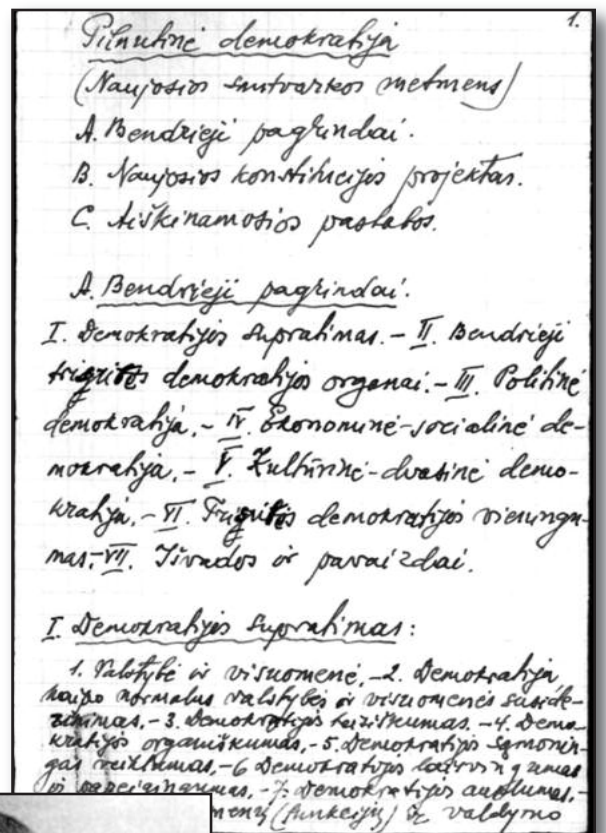 1.
Pilnutinė demokratija
(Naujosios santvarkos metmens)
A. Bendrieji pagrindai.
B. Naujosios konstitucijos projektas.
C. Aiškinamosios pastabos.
A. Bendrieji pagrindai.
I. Demokratijos supratimas. – II. Bendrieji
demokratijos organai. – III. Politinė
demokratija. – IV. Ekonominė-socialinė de-
mokratija. – V. Kultūrinė-dvasinė demo-
kratija. – VI. demokratijos vieningu-
mas. – VII. Išvados ir pavaizdai.
I. Demokratijos supratimas:
1. Valstybė ir visuomenė. – 2. Demokratija,
kaipo normalus valstybės ir visuomenės suside-
rinimas. – 3. Demokratijos – 4. Demo-
kratijos organiškumas. – 5. Demokratijos sąmonin-
gas veiklumas. – 6 Demokratijos laisvingumas
ir pareigingumas. – 7. Demokratijos –
(funkcijų) valdymo